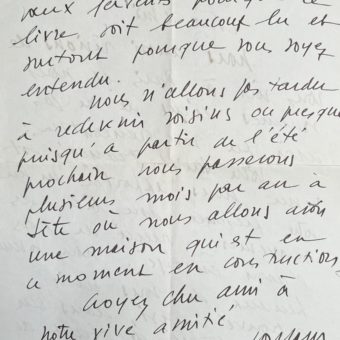 vœux fervents pour que ce
livre soit beaucoup lu et
surtout pour que vous soyez
entendu.
Nous n'allons pas tarder
à redevenir voisins ou presque
puisqu'à partir de l'été
prochain nous passerons
plusieurs mois par an à
Sète où nous allons avoir
une maison qui est en
ce moment en construction.
Croyez cher ami à
notre vive amitié